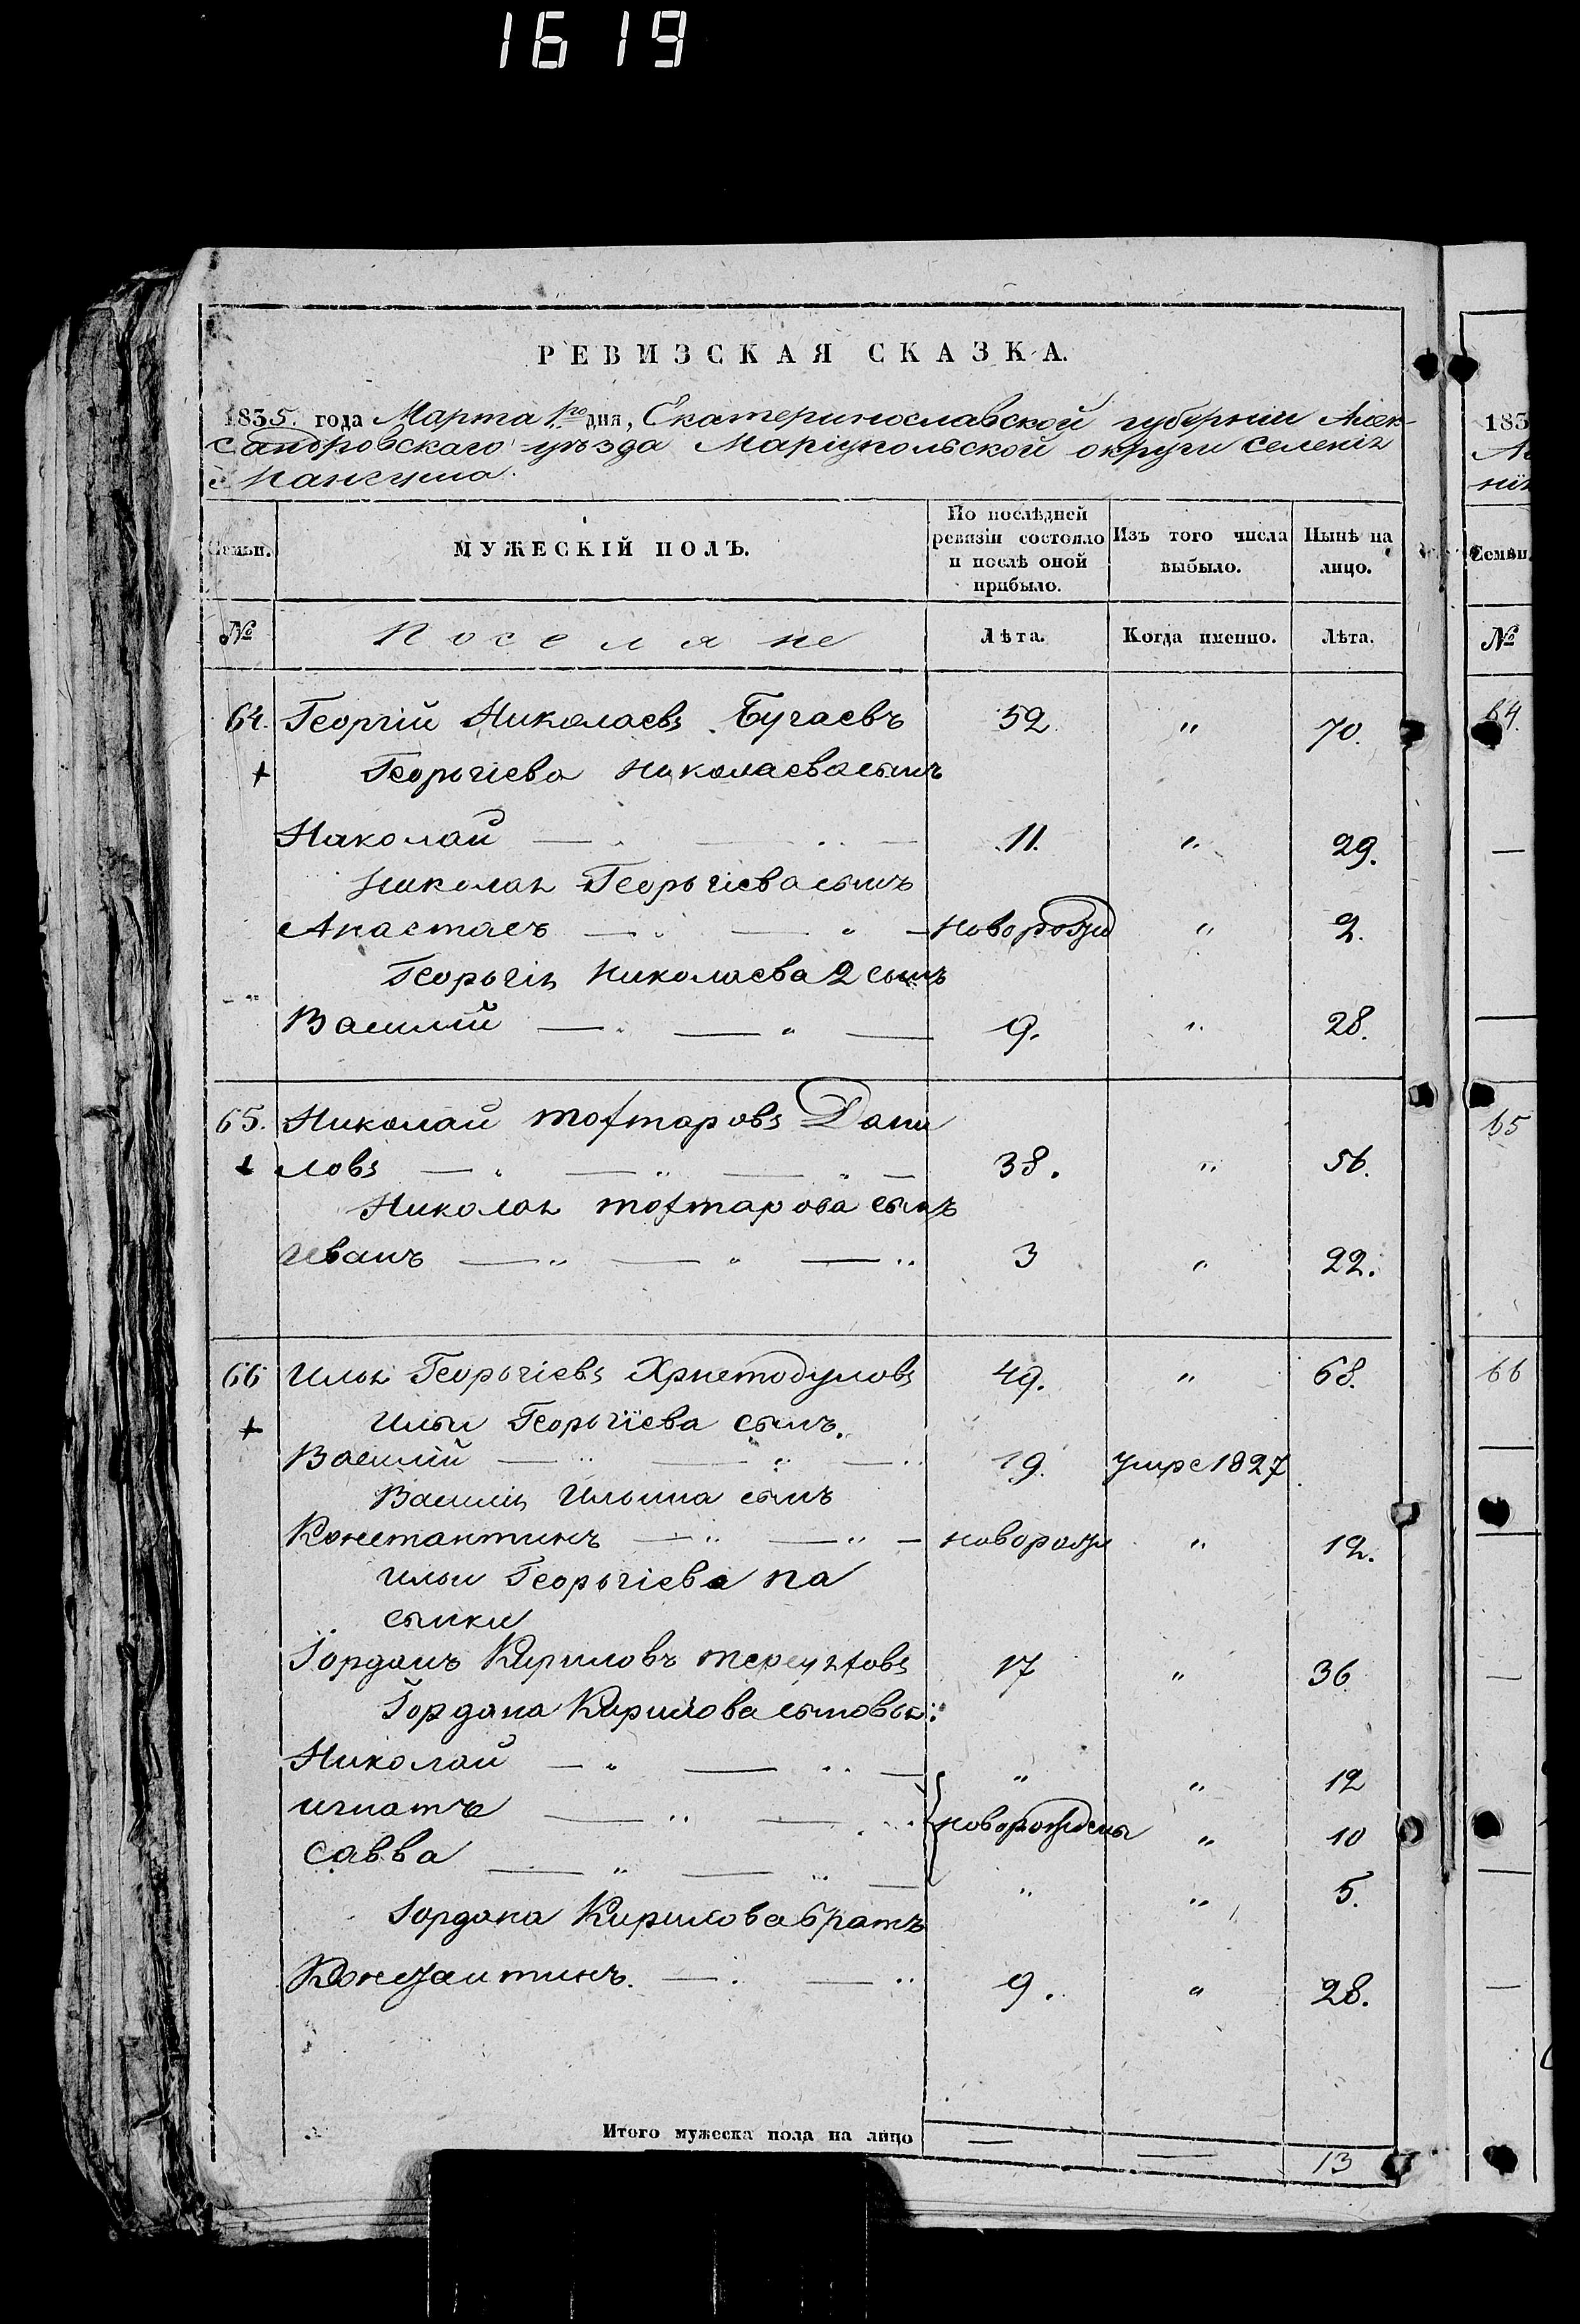 1619
РЕВИЗСКАЯ СКАЗКА.
1835. года Марта 1го дня, Екатеринославской губернии Алек-
сандровскаго уѣзда Маріупольской округи селенія
Мангуша.
Семьи. МУЖЕСКІЙ ПОЛЪ. По послѣдней ревизіи состояло и послѣ оной прибыло. Изъ того числа выбыло. Нынѣ на лицо.
№ Поселяне Лѣта. Когда именно. Лѣта.
64. Георгій Николаевъ Бугаевъ 52. " 70.
+ Георьгіева Николаева сынъ
Николай — " — " — 11. " 29.
Николая Георьгіева сынъ
Анастасъ — " — " — новорожд " 2.
Георьгія Николаева 2 сынъ
Василій — " — " — 9. " 28.
65. Николай Тохтаровъ Дани
+ ловъ — " — " — " — 38. " 56.
Николая Тохтарова сынъ
Иванъ — " — " — " 3 " 22.
66 Илья Георьгіевъ Христодуловъ 49. " 68.
+ Ильи Георьгіева сынъ.
Василій — " — " — " 19. умре 1827
Василія Ильина сынъ
Константинъ — " — " — новорожд " 12.
Ильи Георьгіева па
сынки
Іорданъ Кириловъ 17 " 36
Іордана Кирилова сыновья:
Николай — " — " — " " 12
игнатъ — " — " новорождены " 10
Савва — " — " — " " 5.
Іордана Кирилова братъ
Константинъ. — " — " 9. " 28.
Итого мужеска пола на лицо — — 13
183
Семьи
№
64.
65
66